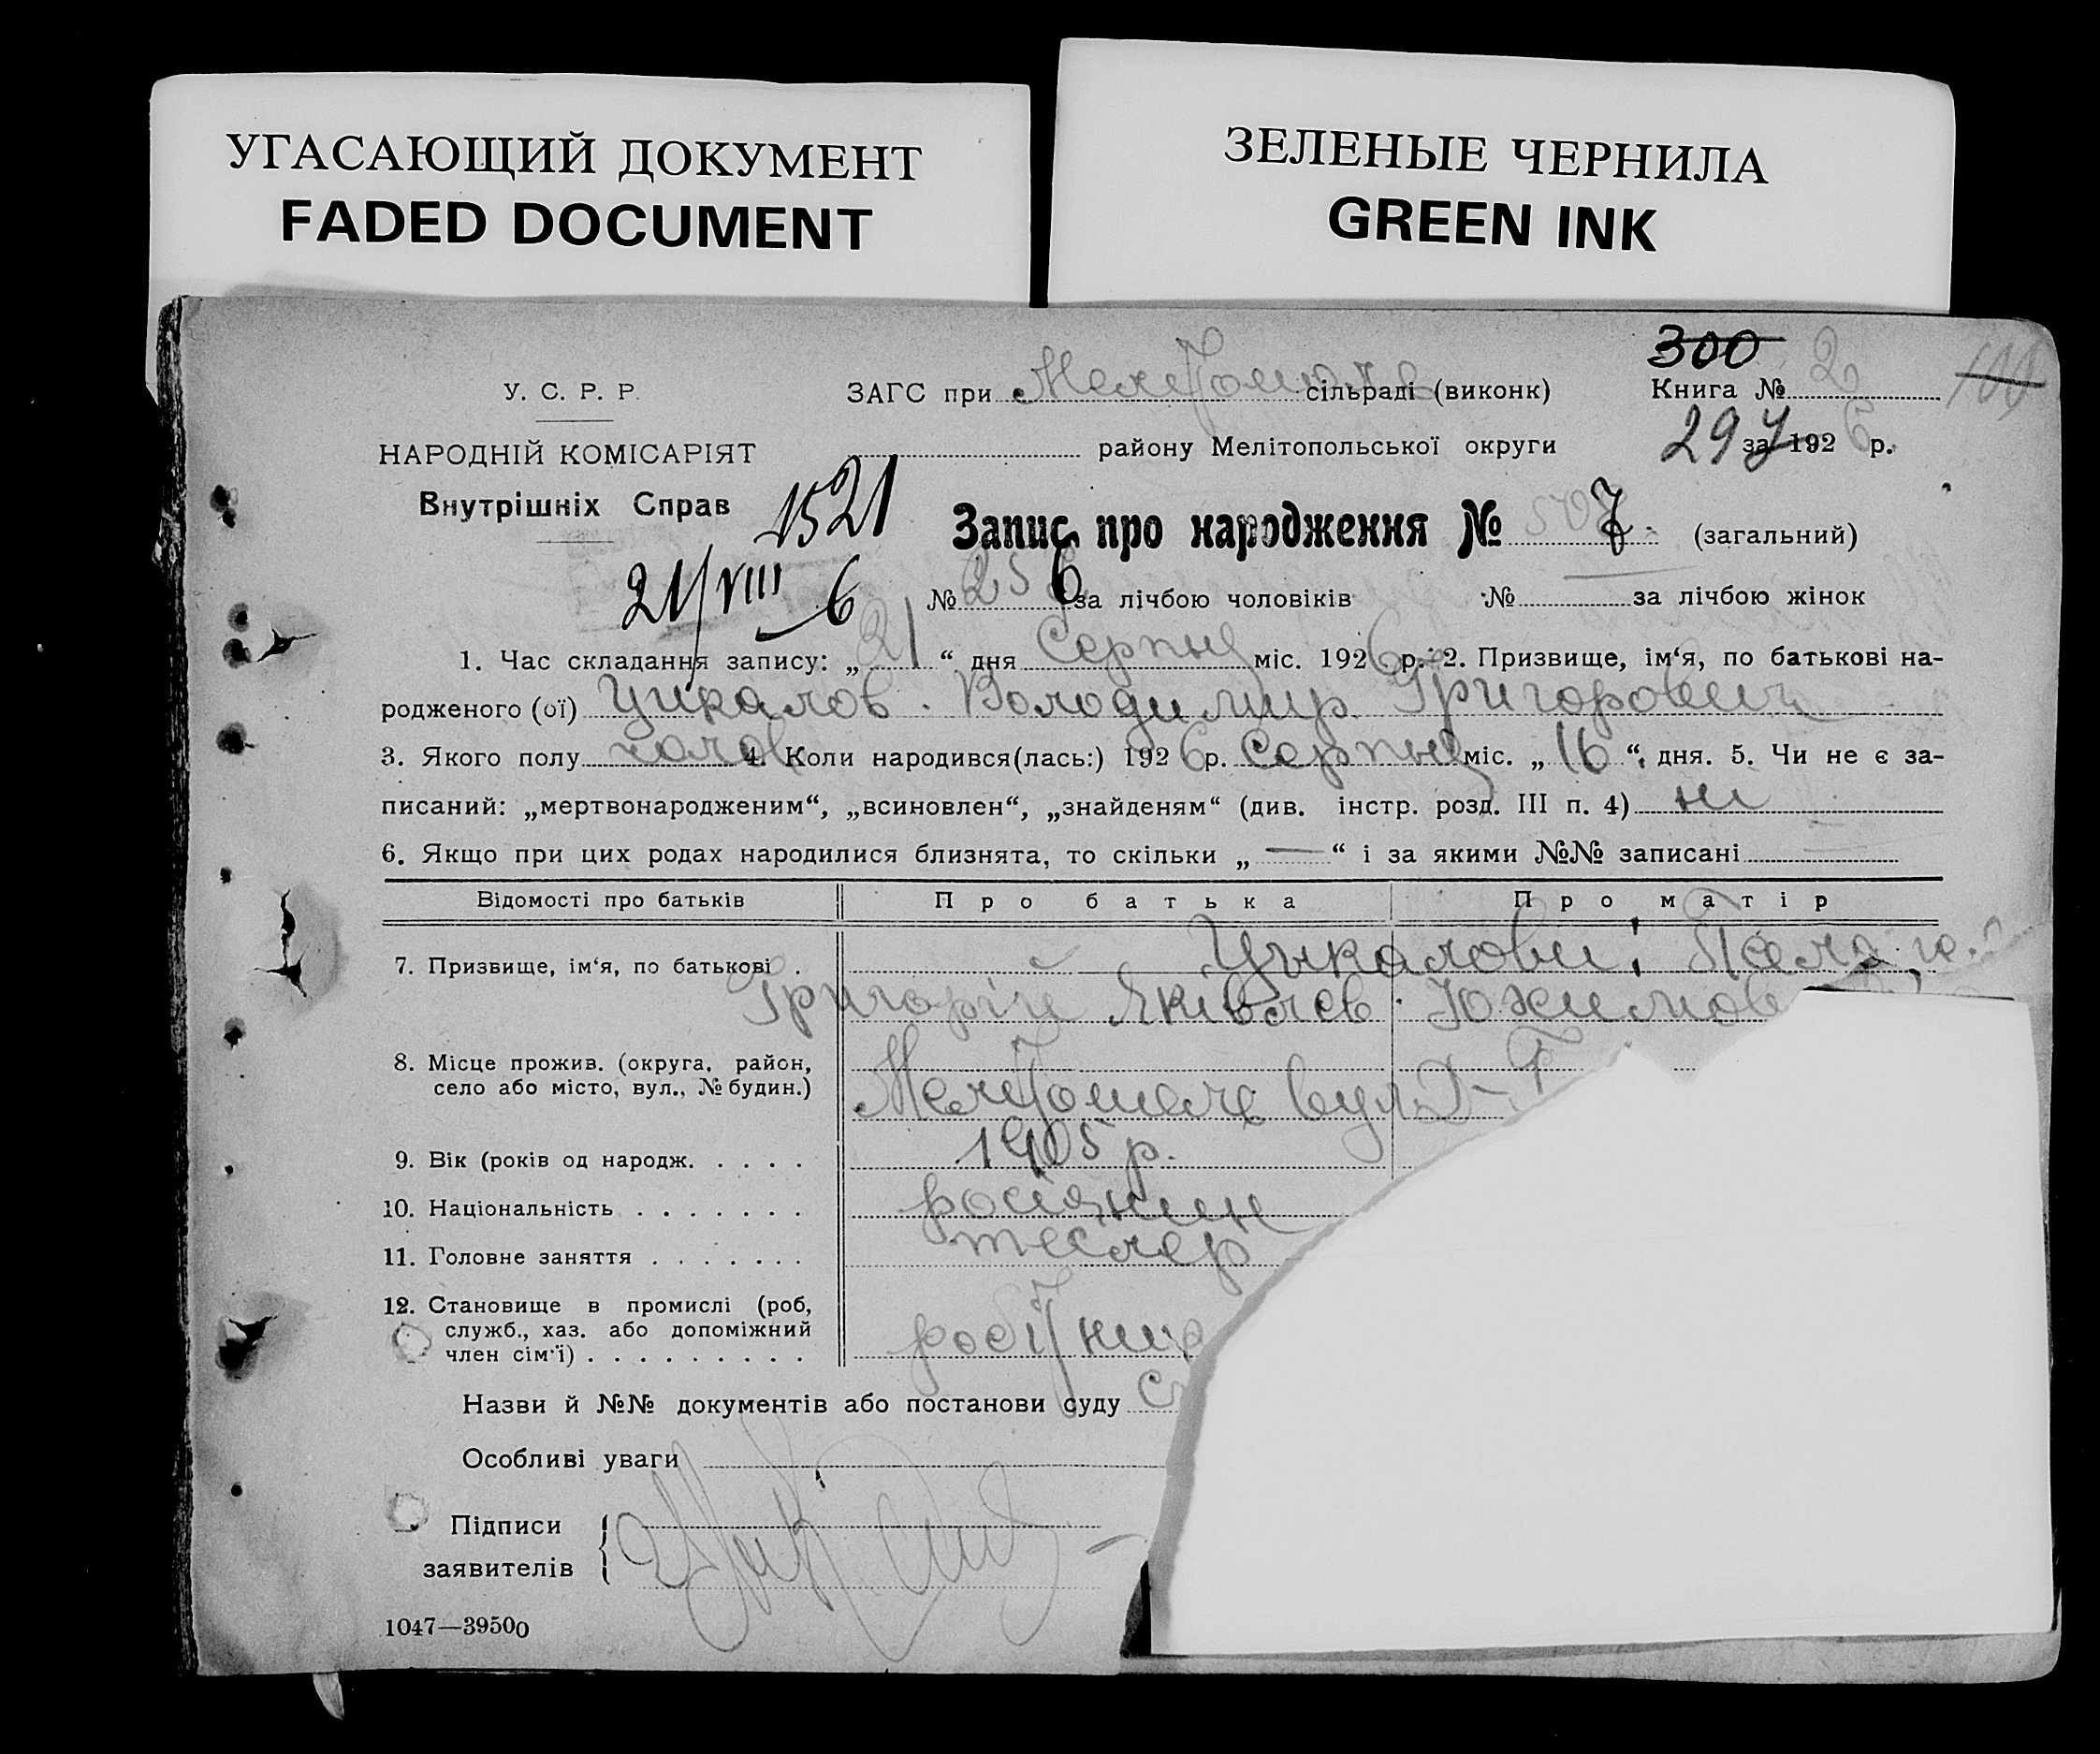 УГАСАЮЩИЙ ДОКУМЕНТ
FADED DOCUMENT
ЗЕЛЕНЫЕ ЧЕРНИЛА
GREEN INK
300
У. С. Р. Р.
ЗАГС при сільраді (виконк)
Книга № 2
НАРОДНІЙ КОМІСАРІЯТ
району Мелітопольської округи
297 за 1926 р.
Внутрішніх Справ
1521
Запис про народження № 7 (загальний)
21/VIII 6
№ 256 за лічбою чоловіків № за лічбою жінок
1. Час складання запису: „21“ дня Серпня міс. 1926 р. 2. Призвище, ім‘я, по батькові на-
родженого (ої) Цикалов Володимир Григорович
3. Якого полу чолов 4. Коли народився(лась:) 1926 р. Серпня міс. „16“ дня. 5. Чи не є за-
писаний: „мертвонародженим“, „всиновлен“, „знайденям“ (див. інстр. розд. III п. 4) ні
6. Якщо при цих родах народилися близнята, то скільки „—“ і за якими №№ записані
Відомості про батьків Про батька Про матір
7. Призвище, ім‘я, по батькові . Цыкалови:
Григорій Яківлев
8. Місце прожив. (округа, район,
село або місто, вул., № будин.) вул.
9. Вік (років од народж. . . . . 1905 р.
10. Національність . . . . . . . росіянин
11. Головне заняття . . . . . . . тесляр
12. Становище в промислі (роб,
служб., хаз. або допоміжний
член сім‘ї) . . . . . . . . . робітник
Назви й №№ документів або постанови суду
Особливі уваги
Підписи
заявителів
1047—39500